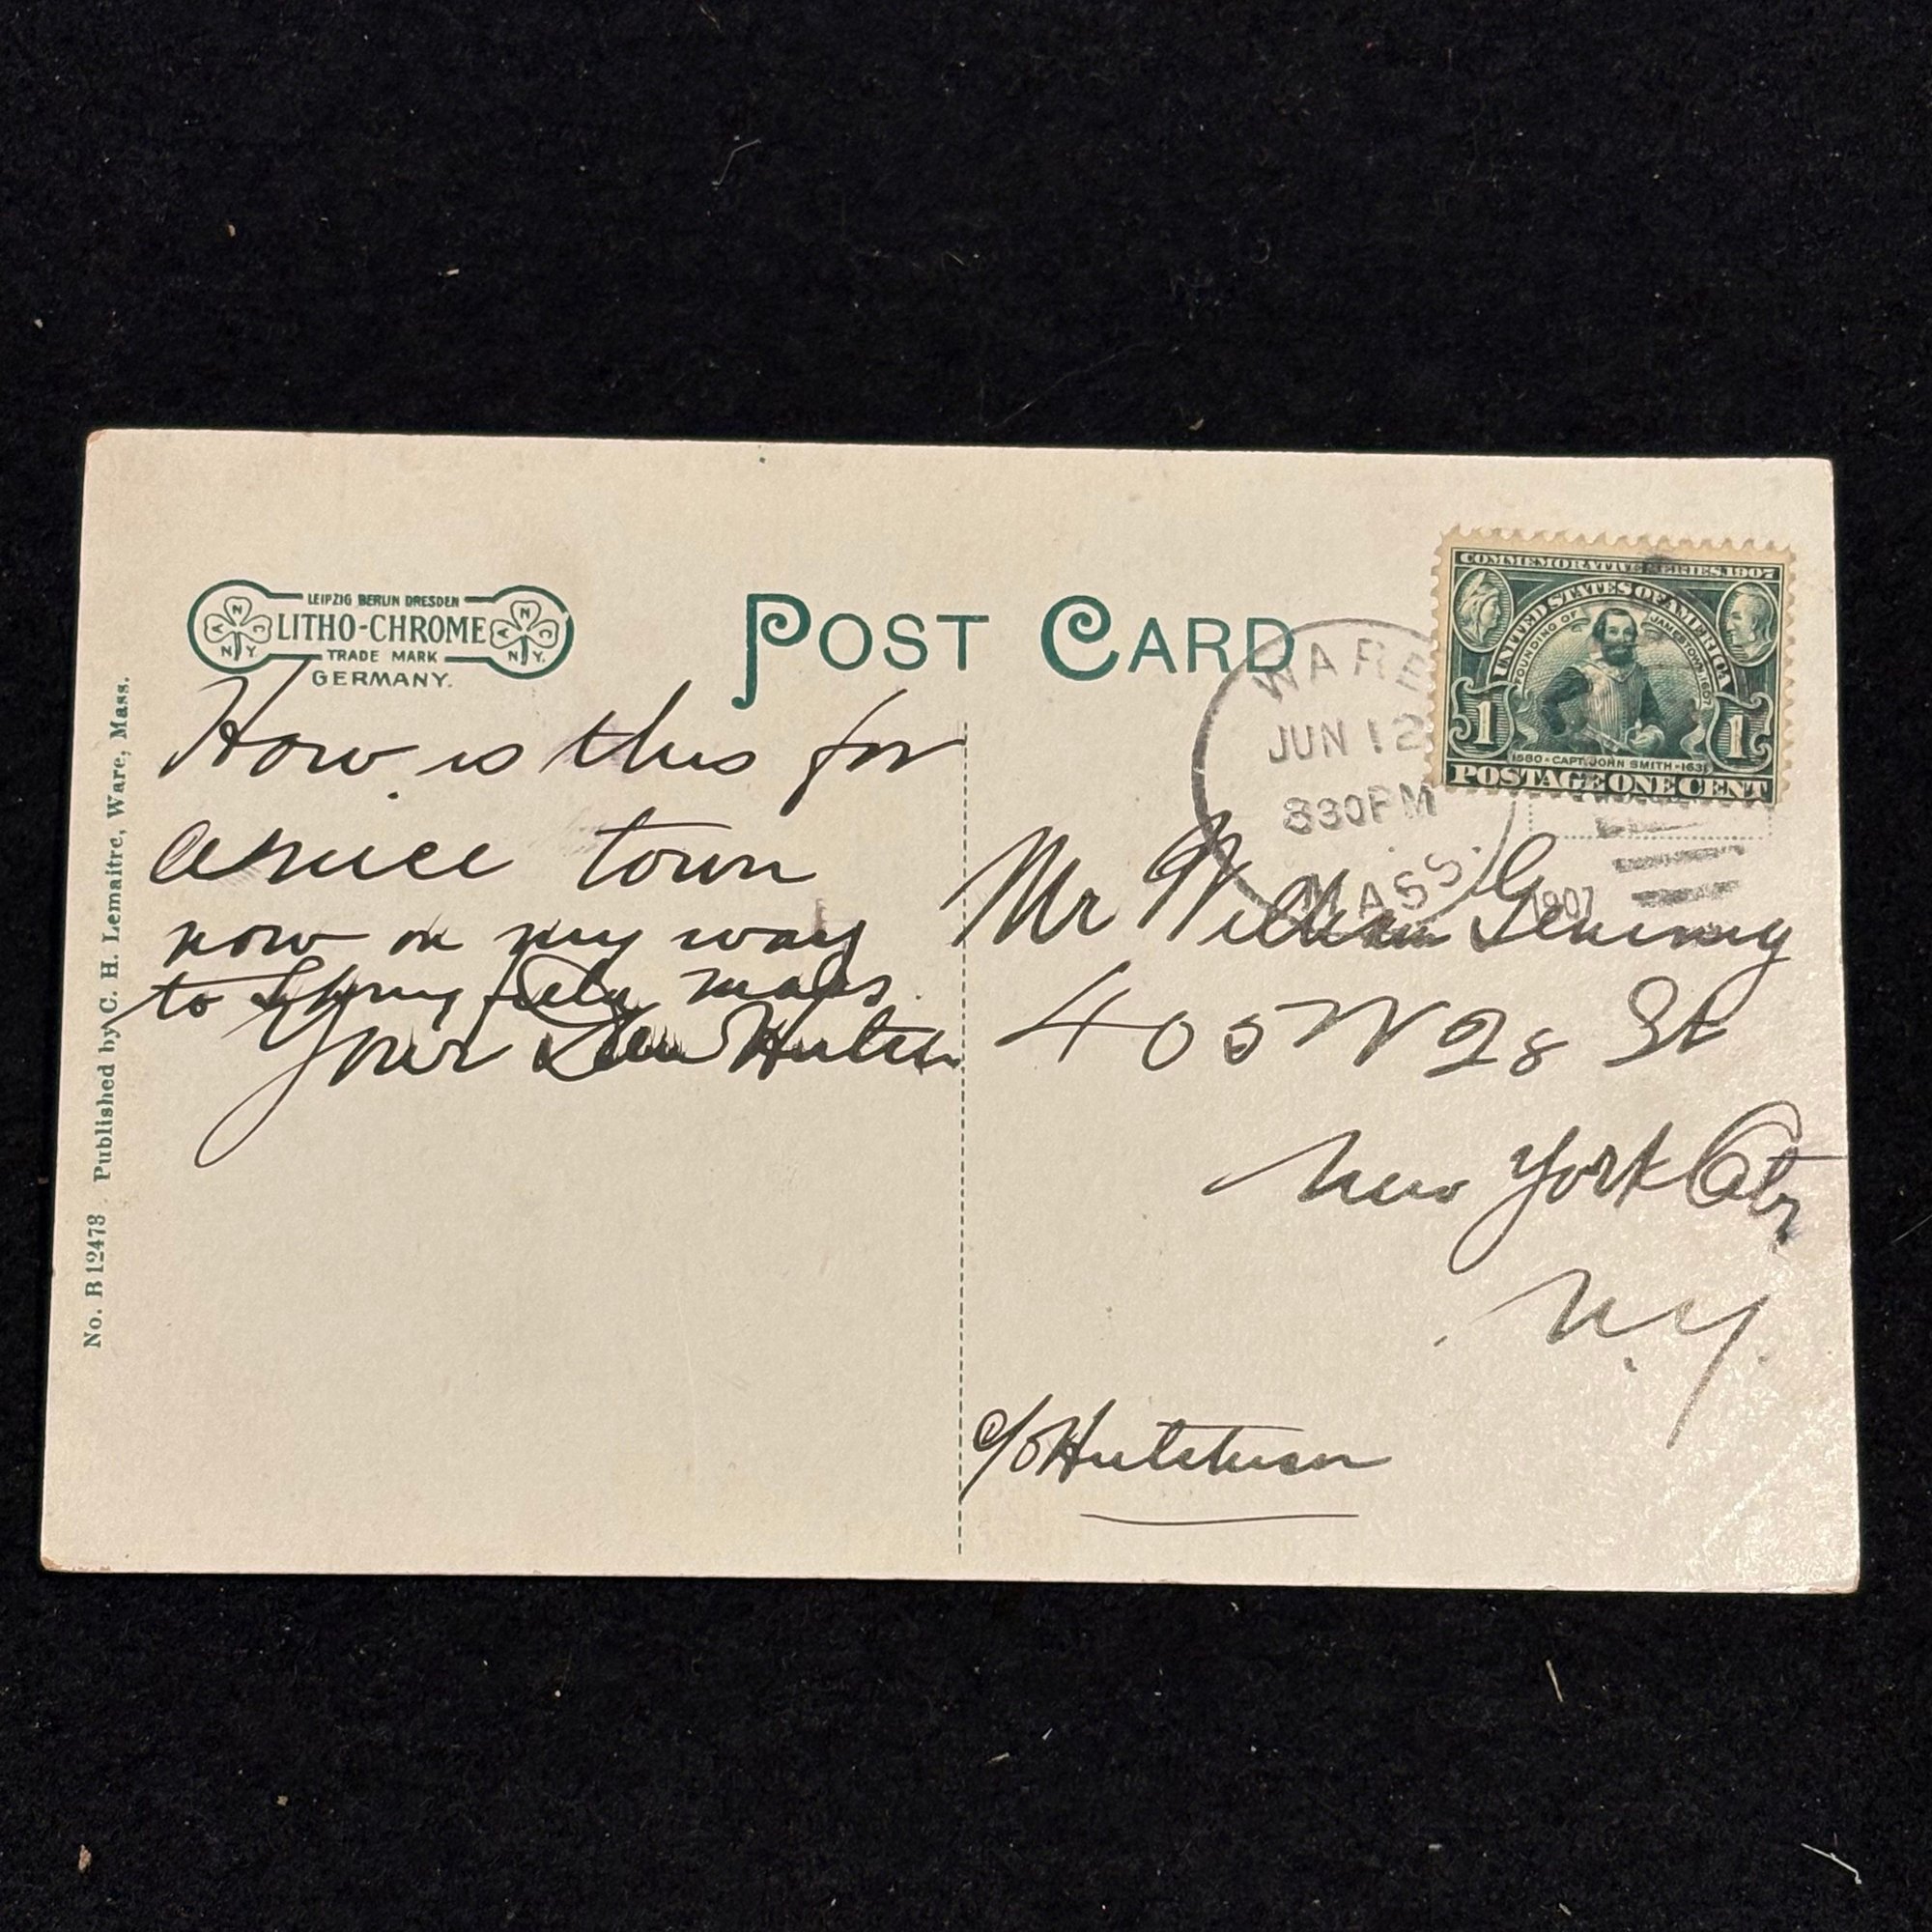 LEIPZIG BERLIN DRESDEN
LITHO-CHROME
TRADE MARK
GERMANY.
A N C
N. Y.
A N C
N. Y.
POST CARD
No. B 12473 Published by C. H. Lemaitre, Ware, Mass.
How is this for
a nice town
now on my way
to Springfield, mass.
Your Hutch
WARE
JUN 12
830PM
MASS.
1907
COMMEMORATIVE SERIES 1907
UNITED STATES OF AMERICA
FOUNDING OF JAMESTOWN 1607
1 1
1580 - CAPT. JOHN SMITH - 1631
POSTAGE ONE CENT
Mr William
405 W 28 St
New York City
N.Y.
c/o Hutchison